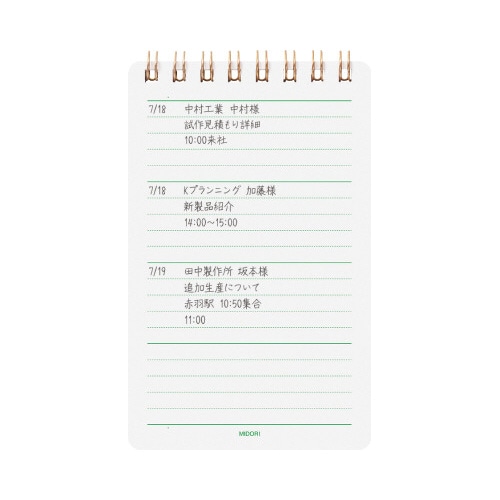 7/18 中村工業 中村様
試作見積もり詳細
10:00来社
7/18 Kプランニング 加藤様
新製品紹介
14:00〜15:00
7/19 田中製作所 坂本様
追加生産について
赤羽駅 10:50集合
11:00
MIDORI